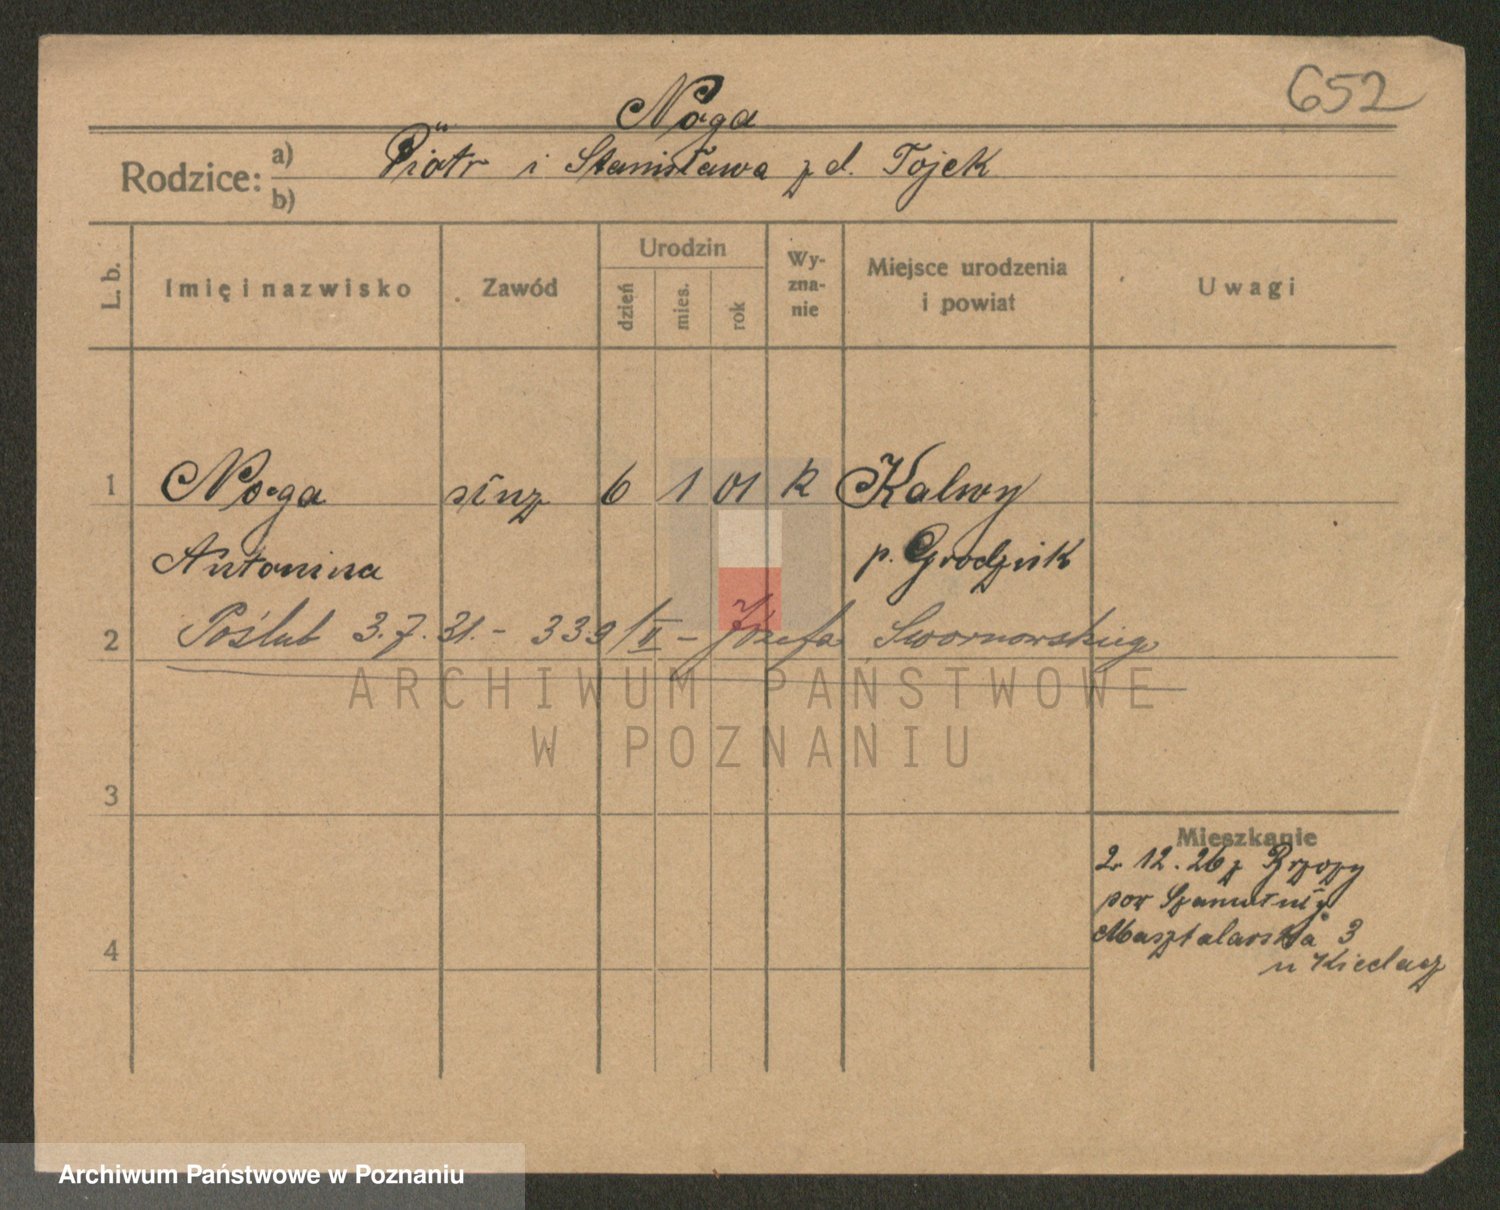 652
Noga
Rodzice: a) Piotr i Stanisława z d. Tojek
b)
L. b. Imię i nazwisko Zawód Urodzin dzień mies. rok Wyznanie Miejsce urodzenia i powiat Uwagi
1 Noga służ 6 1 01 k Kalwy
Antonina p. Grodzisk
2 Poślub 3.7.31. - 339/II - Józefa Swornowskiego
ARCHIWUM PAŃSTWOWE
W POZNANIU
3
Mieszkanie
2 12. 26 z
pow
4 Masztalarska 3
u
Archiwum Państwowe w Poznaniu